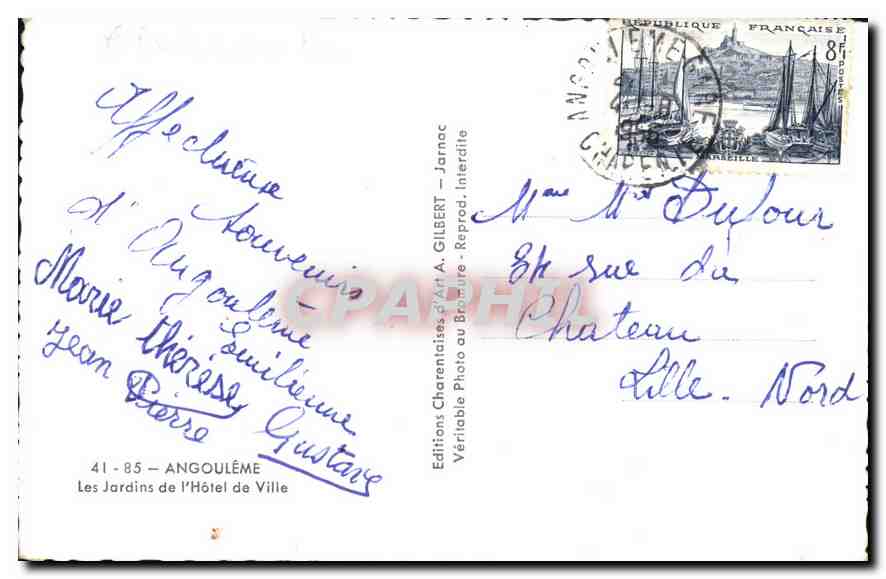 Affectueux
souvenirs
d'Angoulême
Emilienne
Marie Thérèse
Jean Pierre
Gustave
41 - 85 — ANGOULÊME
Les Jardins de l'Hôtel de Ville
Editions Charentaises d'Art A. GILBERT — Jarnac
Véritable Photo au Bromure - Reprod. Interdite
RÉPUBLIQUE FRANÇAISE
8F
POSTES
MARSEILLE
ANGOULEME GARE
CHARENTE
CPAPHIL
Mme Dufour
rue du
Chateau
Lille. Nord